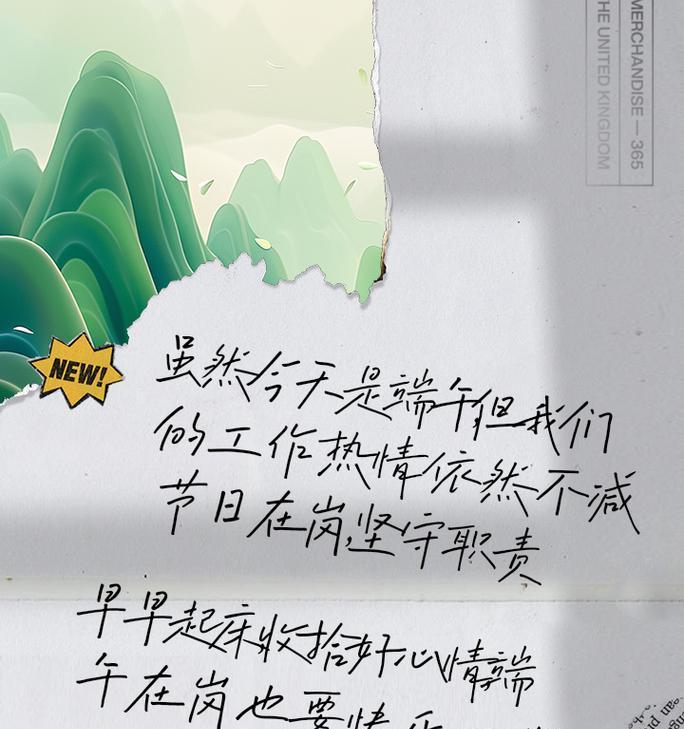 MERCHANDISE — 365
THE UNITED KINGDOM
NEW!
虽然今天是端午但我们
的工作热情依然不减
节日在岗,坚守职责
早早起床收拾好心情端
午在岗也要快乐